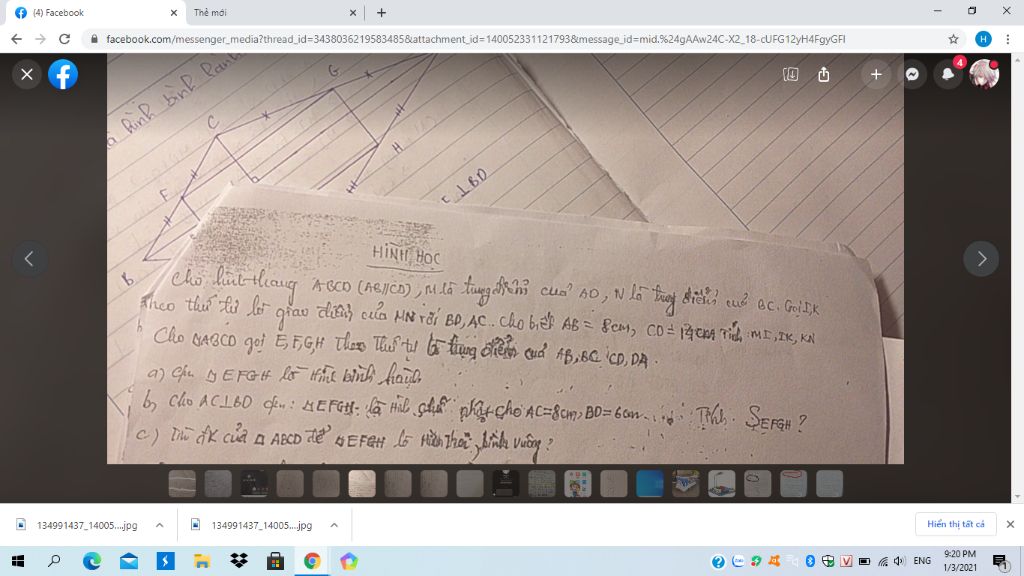 (4) Facebook
Thẻ mới
facebook.com/messenger_media?thread_id=3438036219583485&attachment_id=140052331121793&message_id=mid.%24gAAw24C-X2_18-cUFG12yH4FgyGFI
H
4
hình bình hành
G
C
H
F
B
⊥BD
HÌNH HỌC
Cho hình thang ABCD (AB//CD), M là trung điểm của AD, N là trung điểm của BC. Gọi I,K
theo thứ tự là giao điểm của MN với BD, AC. Cho biết AB = 8cm, CD = Tính MI, IK, KN
Cho ABCD gọi E,F,G,H theo thứ tự là trung điểm của AB,BC,CD,DA.
a) cm EFGH là Hình bình hành
b) cho AC⊥BD cm: EFGH là Hình chữ nhật cho AC=8cm, BD=6cm Tính S EFGH ?
c) Tìm đk của ABCD để EFGH là Hình thoi, hình vuông ?
134991437_14005....jpg
134991437_14005....jpg
Hiển thị tất cả
ENG
9:20 PM
1/3/2021
1